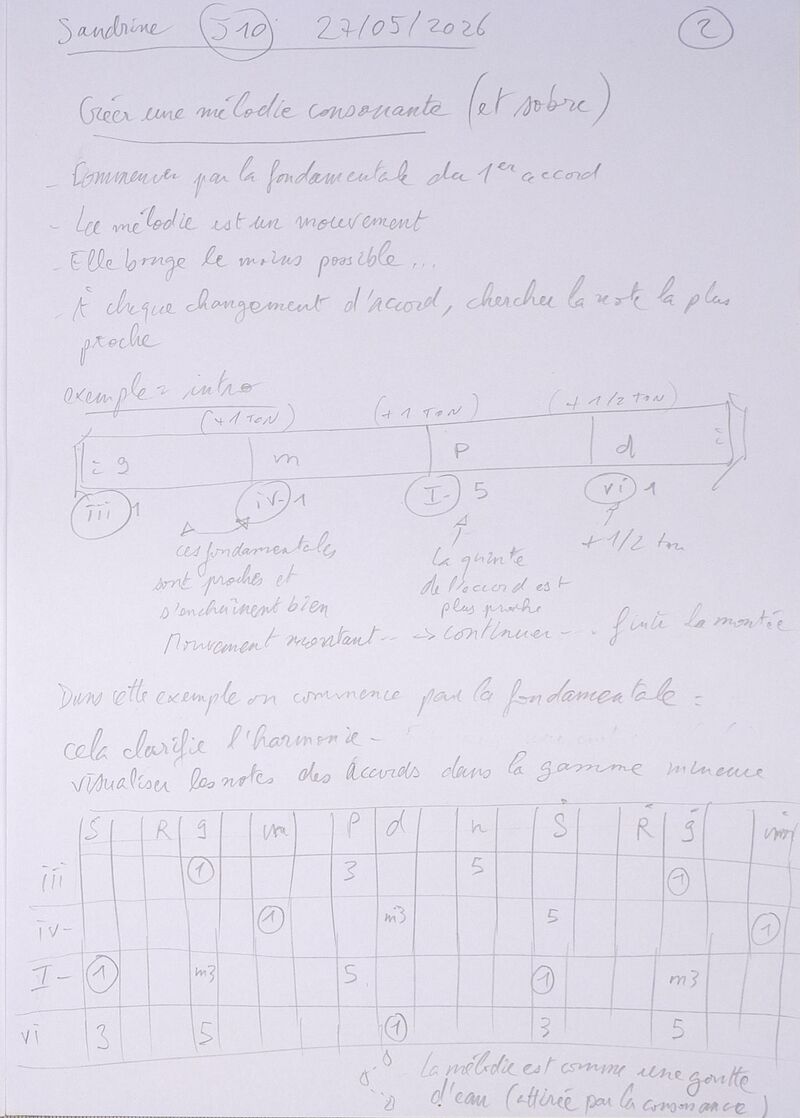 Sandrine J10 27/05/2026 2
Créer une mélodie consonante (et sobre)
- Commencer par la fondamentale du 1er accord
- La mélodie est un mouvement
- Elle bouge le moins possible...
- À chaque changement d'accord, chercher la note la plus
proche
exemple = intro
(+1 TON) (+1 TON) (+1/2 TON)
: g m P d :
iii 1 iv- 1 I- 5 vi 1
ces fondamentales
sont proches et
s'enchaînent bien
la quinte
de l'accord est
plus proche
+1/2 ton
Mouvement montant... → continuer... finir la montée
Dans cette exemple on commence par la fondamentale =
cela clarifie l'harmonie -
visualiser les notes des accords dans la gamme mineure
S R g m P d n Ṡ Ṙ ġ ṁ
iii 1 3 5 1
iv- 1 m3 5 1
I- 1 m3 5 1 m3
vi 3 5 1 3 5
La mélodie est comme une goutte
d'eau (attirée par la consonance)